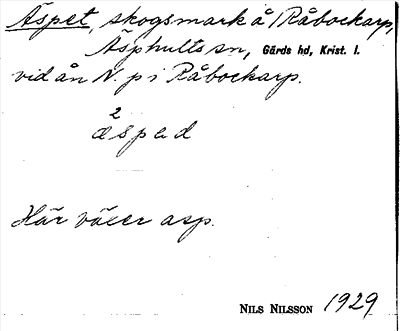 Äspet, skogsmark å Råbockarp,
Äsphults sn, Gärds hd, Krist. l.
vid ån N. p i Råbockarp.
2
æspad
Här växer asp.
NILS NILSSON 1929